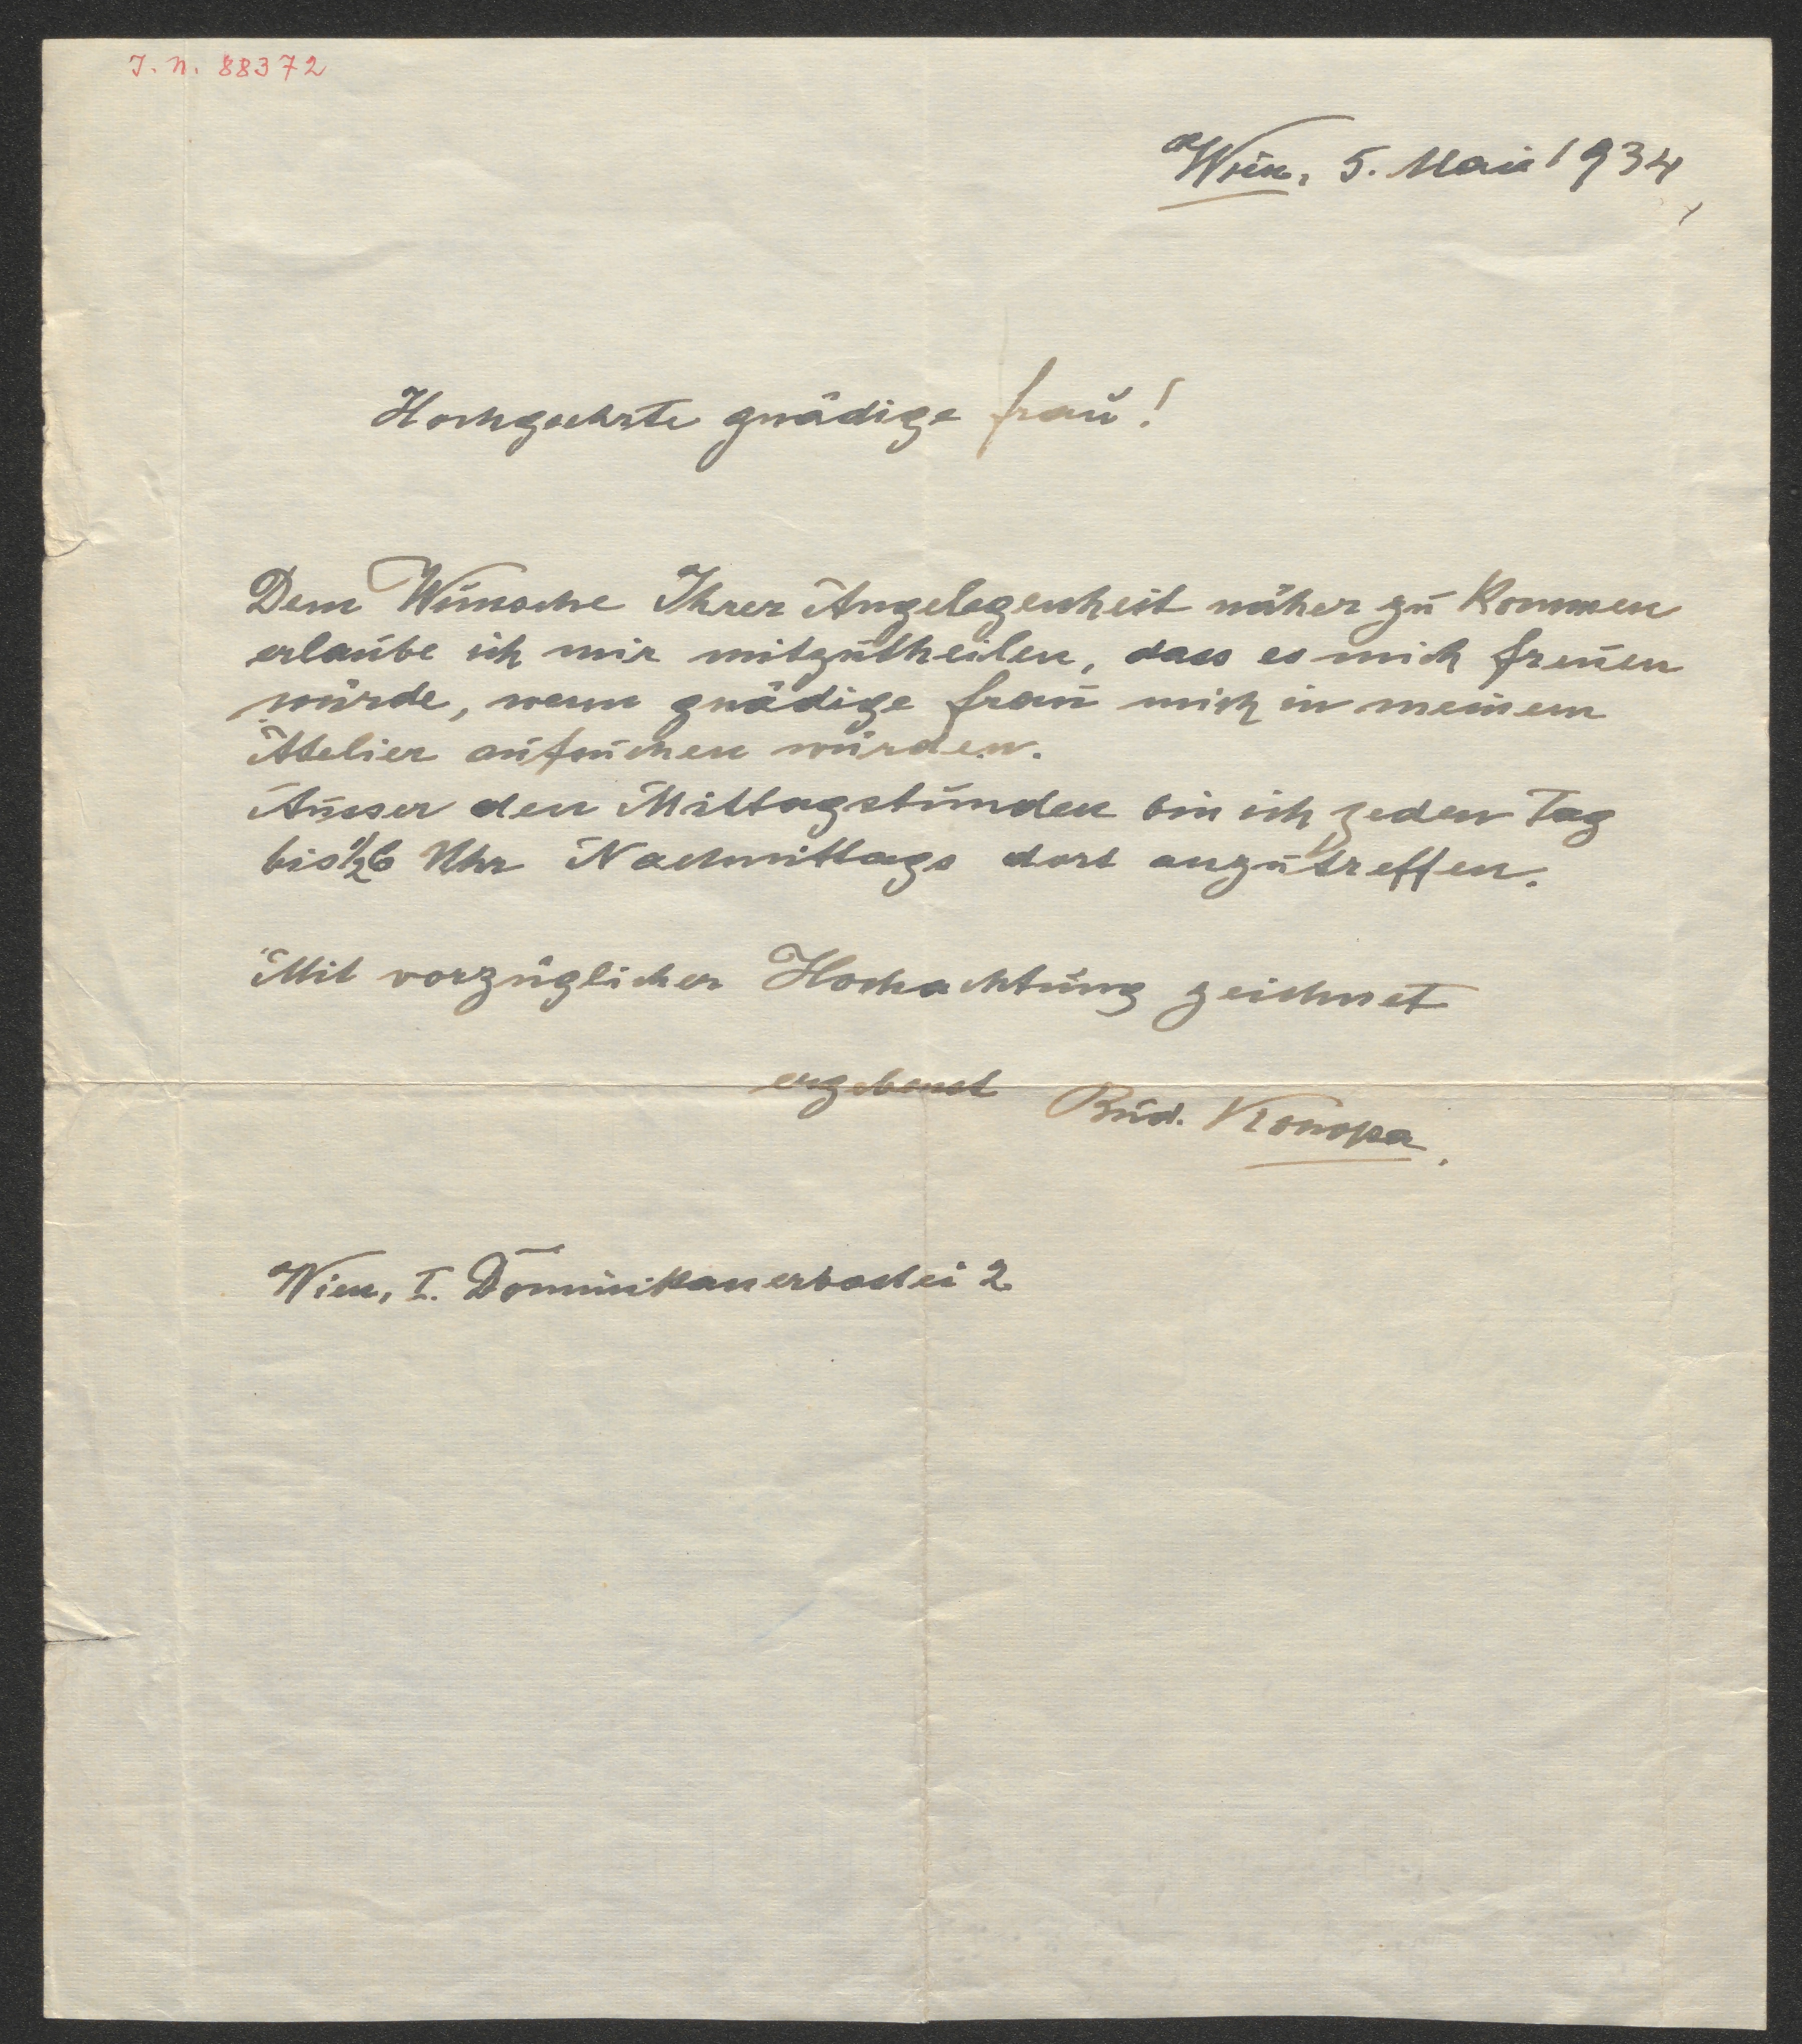 J. N. 88372
Wien, 5. Mai 1934
Hochgeehrte gnädige Frau!
Dem Wunsche Ihrer Angelegenheit näher zu kommen
erlaube ich mir mitzutheilen, dass es mich freuen
würde, wenn gnädige Frau mich in meinem
Atelier aufsuchen würden.
Ausser den Mittagstunden bin ich jeden Tag
bis ½6 Uhr Nachmittags dort anzutreffen.
Mit vorzüglicher Hochachtung zeichnet
ergebenst Rud. Konopa.
Wien, I. Dominikanerbastei 2